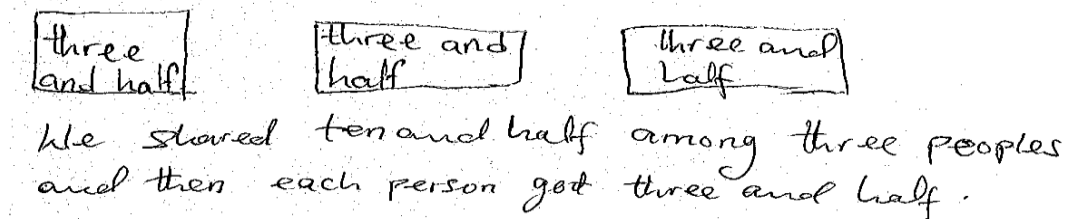 three and half
three and half
three and half
We shared ten and half among three peoples
and then each person got three and half.